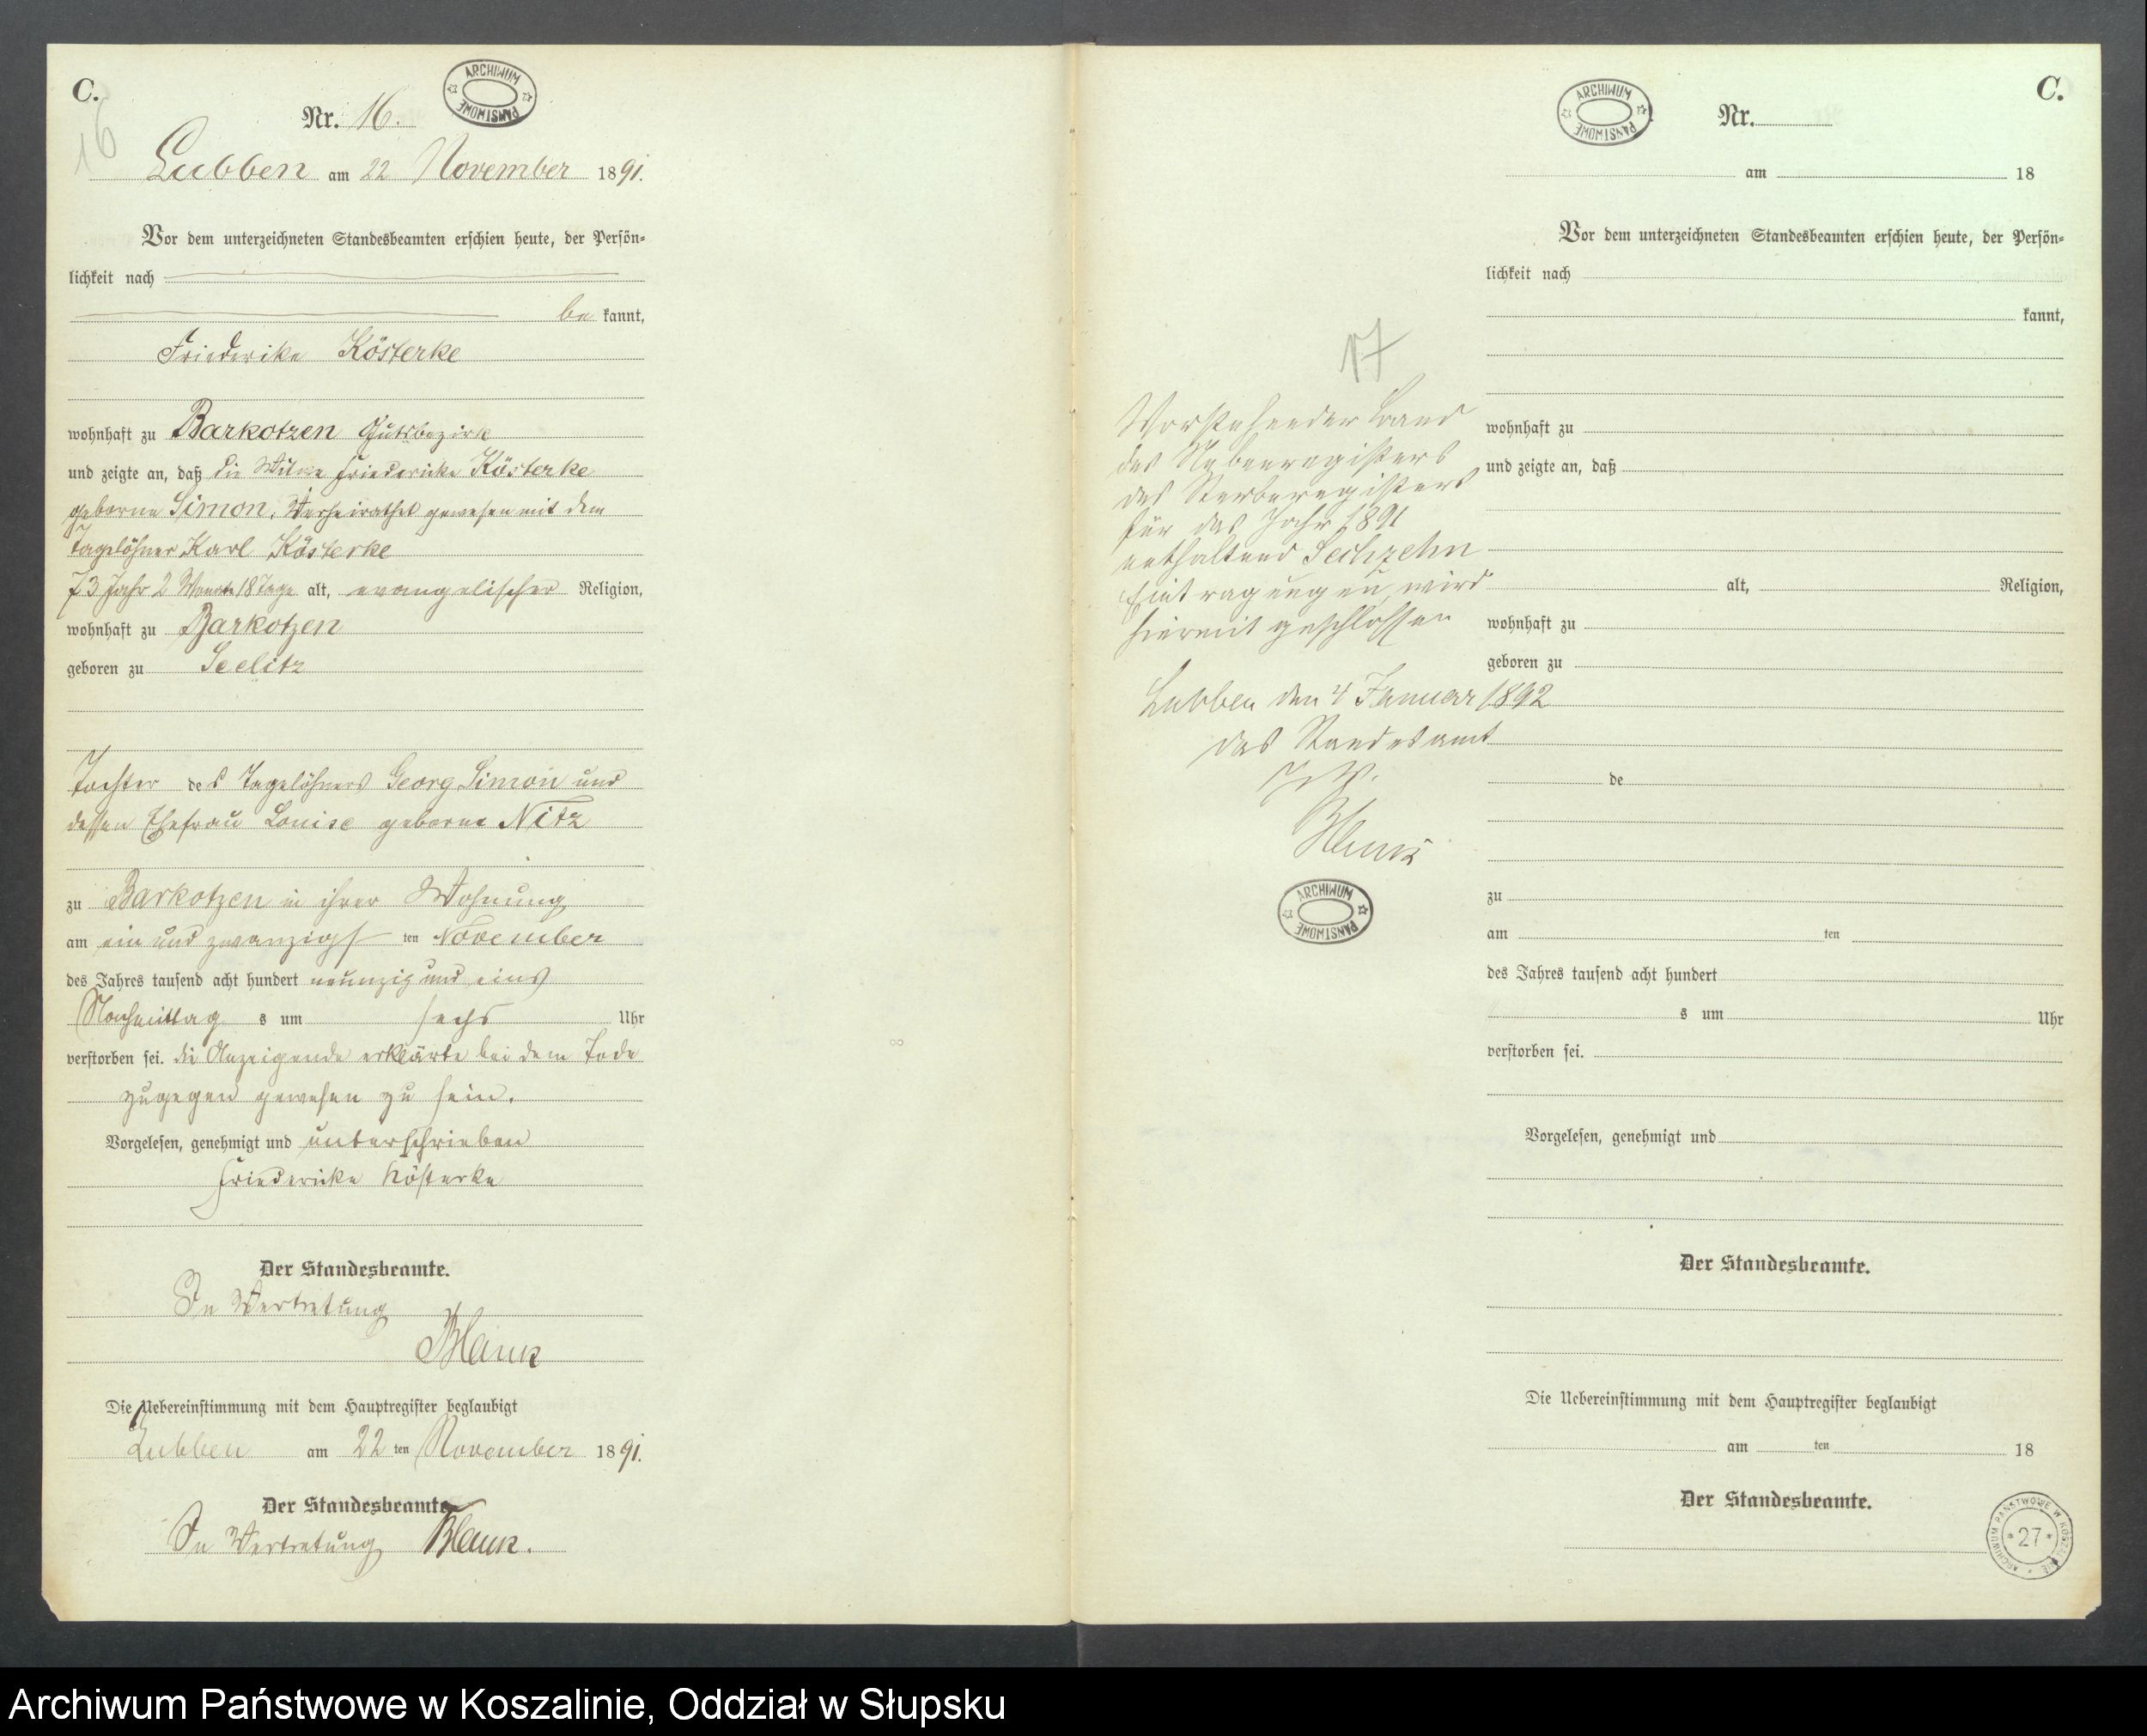 C.
16
Nr. 16.
ARCHIWUM PAŃSTWOWE
Lubben am 22 November 1891.
Vor dem unterzeichneten Standesbeamten erschien heute, der Persön-
lichkeit nach
be kannt,
Friederike Kösterke
wohnhaft zu Barkotzen Gutsbezirk
und zeigte an, daß die Witwe Friedericke Kösterke
geborne Simon, Verheirathet gewesen mit dem
Tagelöhner Karl Kösterke
73 Jahr 2 Monate 18 Tage alt, evangelischer Religion,
wohnhaft zu Barkotzen
geboren zu Seelitz
Tochter des Tagelöhners Georg Simon und
dessen Ehefrau Louise geborne Nitz
zu Barkotzen in ihrer Wohnung
am ein und zwanzigsten November
des Jahres tausend acht hundert neunzig und eins
Nachmittag s um sechs Uhr
verstorben sei. die Anzeigende erklärte bei dem Tode
zugegen gewesen zu sein.
Vorgelesen, genehmigt und unterschrieben
Friedericke Kösterke
Der Standesbeamte.
In Vertretung
Blank
Die Uebereinstimmung mit dem Hauptregister beglaubigt
Lubben am 22 ten November 1891.
Der Standesbeamte
In Vertretung Blank.
17
Vorstehender Band
des Nebenregisters
des Sterberegisters
für das Jahr 1891
enthaltend Sechzehn
Eintragungen, wird
hiermit geschlossen
Lubben den 4 Januar 1892
das Standesamt
I. V.
Blank
ARCHIWUM PAŃSTWOWE
C.
ARCHIWUM PAŃSTWOWE
Nr.
am 18
Vor dem unterzeichneten Standesbeamten erschien heute, der Persön-
lichkeit nach
kannt,
wohnhaft zu
und zeigte an, daß
alt, Religion,
wohnhaft zu
geboren zu
de
zu
am ten
des Jahres tausend acht hundert
s um Uhr
verstorben sei.
Vorgelesen, genehmigt und
Der Standesbeamte.
Die Uebereinstimmung mit dem Hauptregister beglaubigt
am ten 18
Der Standesbeamte.
ARCHIWUM PAŃSTWOWE W KOSZALINIE
*27*
Archiwum Państwowe w Koszalinie, Oddział w Słupsku